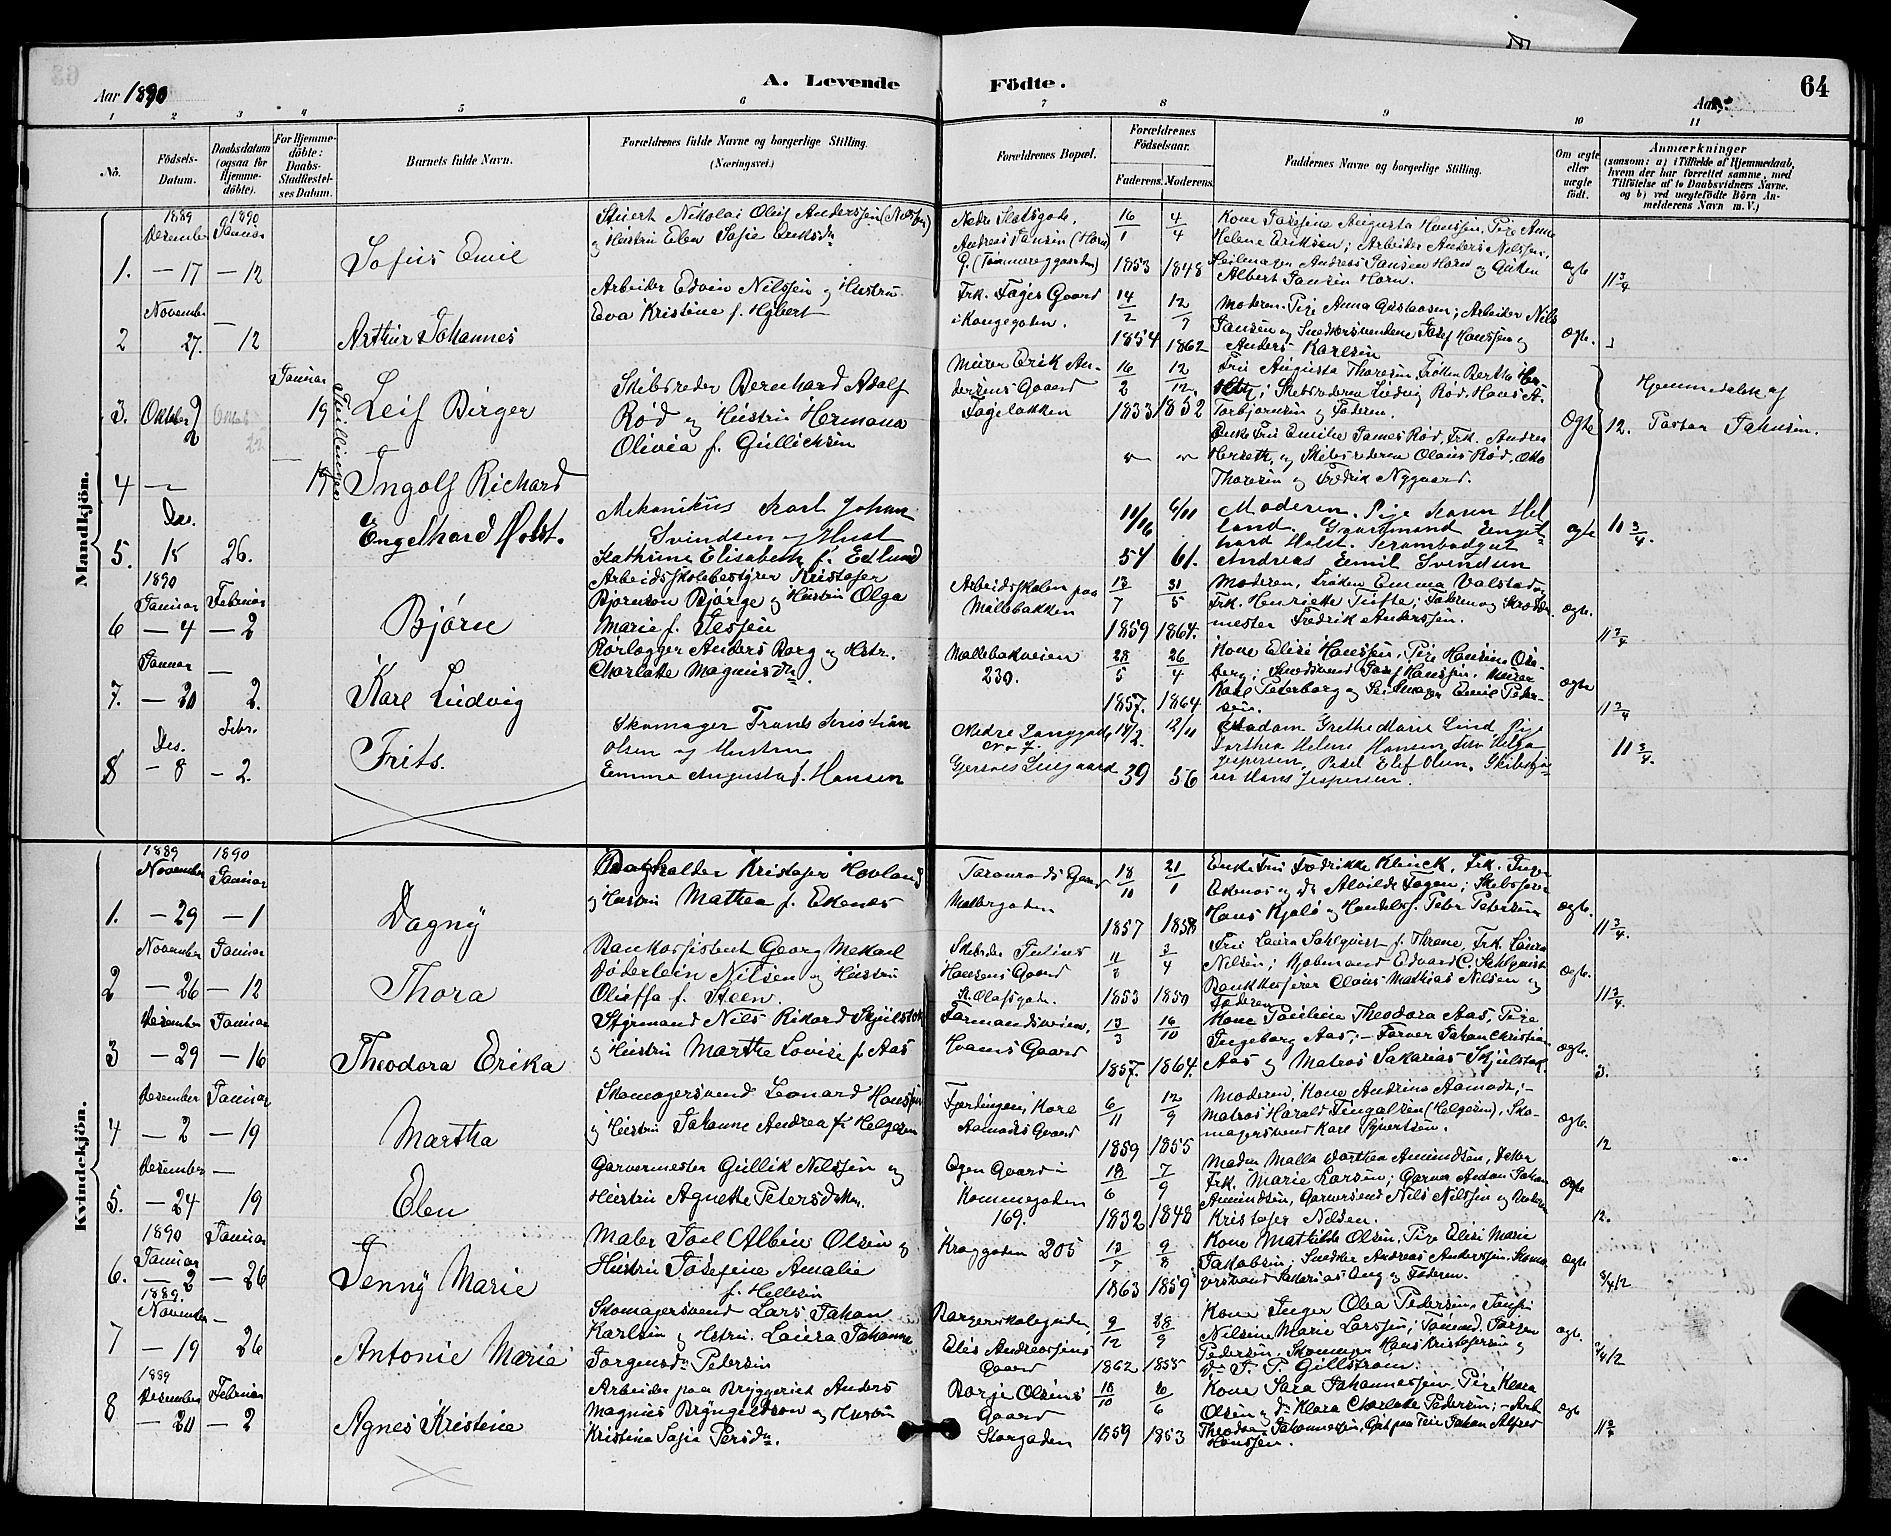 63
Aar 1890
A. Levende
Födte.
64
Aar
1 2 3 4 5 6 7 8 9 10 11
No.
Födsels-Datum.
Daabsdatum (ogsaa for Hjemme-döbte).
For Hjemme-döbte: Daabs-Stadfæstel-ses Datum.
Barnets fulde Navn.
Forældrenes fulde Navne og borgerlige Stilling. (Næringsvei.)
Forældrenes Bopæl.
Forældrenes Födselsaar.
Faderens. Moderens.
Faddernes Navne og borgerlige Stilling.
Om ægte eller uægte födt.
Anmærkninger
(saasom: a) i Tilfælde af Hjemmedaab, hvem der har forrettet samme, med Tilföielse af to Daabsvidners Navne, og b) ved uægtefödte Börn An-melderens Navn m. V.)
Mandkjön.
1889 Desember 1890 Januar
1. — 17 — 12
Sofus Emil
Stuert Nikolai Oluf Anderssen (Nelssen)
og Hustru Elen Sofie Eriksdr
Nedre Slotsgade,
Andreas Jansen (Horn)
G. (Tømmereggaarden)
16/1 1853 4/4 1848
Kone Josefine Augusta Hanssen, Pige Anne
Helene Eriksen; Arbeider Anders Nilssen,
Seilmager Andreas Jansen Horn og Gutten
Albert Jansen Horn.
ægte
11 3/4
November —
2 27. 12
Arthur Johannes
Arbeider Edvin Nilssen og Hustru
Eva Kristine f. Hybert
Frk. Fayes Gaard
i Kongegaten.
14/2 1854 12/7 1862
Moderen. Pige Anna Gustavsen; Arbeider Nils
Jansen og Snedkersvendene Josef Hanssen og
Anders Karlsen
ægte.
Januar
3. Oktober 2 Oktob 22 19
Tvillinger
Leif Birger
Skibsreder Bernhard Adolf
Rød og Hustru Hermana
Olivia f. Gullichsen
Murer Erik An-
dersens Gaard
Fayelökken
16/2 1833 12/12 1852
Fru Augusta Thoresen, Frøken Berthe Her-
; Skibsrederne Ludvig Rød, Hans A.
Torbjørnsen og Faderen.
Ægte
12.
Hjemmedøbt af
Pastor Jahnsen.
4 — 19
Ingolf Richard
Enke Fru Emilie James Rød, Frk. Andrea
Herseth, og Skibsrederne Olaus Rød, Otto
Thoresen og Fredrik Nygaard.
Des.
5. 15 26.
Engelhard Holst.
Mekanikus Karl Johan
Svindsen og Hust
Kathrine Elisabeth f. Edlund
11/16 54 6/11 61.
Moderen. Pige Karen Hel
land. Graarsmand Engel-
hard Holst.
Andreas Emil Svendsen
ægte
11 3/4.
1890 Januar Februar
6 — 4 — 2
Bjørn
Arbeidsskolebestyrer Kristofer
Bjørnson Bjørge og Hustru Olga
Marie f. Jessen
Arbeidsskolen paa
Møllebakken
13/7 1859 31/5 1864.
Moderen, Frøken Emma Valstad og
Frk. Henriette Tufte; Faderen og Skrædder-
mester Fredrik Anderssen.
ægte.
11 3/4
Januar —
7. — 20 2.
Karl Ludvig
Rørlægger Anders Borg og Hstr.
Charlotte Magnusdr.
Møllebakveien
230.
28/5 1857. 26/4 1864
Kone Elise Hanssen, Pige Hansine Os-
berg; Smedsvend Josef Hanssen. Murer
Karl Peterborg og Sk.Smager Emil Peder-
sen.
ægte
11 3/4
Des. Febr.
8 — 8 — 2.
Frits.
Skomager Frants Kristian
Olsen og Hustru
Emma Augusta f. Hansen
Nedre Langgade
No 7.
14/2. 39 12/11 56
Madam Grethe Marie Lind, Pige
Dorthea Helene Hansen, Frk Helga
Jespersen, Pedel Elef Olsen. Skibsfø-
rer Hans Jespersen.
11 3/4.
Kvindekjön.
1889 November 1890 Januar
1. — 29 — 1
Dagny
Bogholder Kristofer Hovland
og Hustru Mathea f. Ekenes
Taranrøds Gaard
Møllergaden
18/10 1857 21/1 1858
Enke Fru Fredrikke Klinck, Frk. Inga
Ekenæs og do Alvilde Fagen; Skibsfører
Hans Kjølø og Handelsf. Peter Petersen
ægte.
11 3/4.
November Januar
2 — 26 — 12
Thora
Bankassistent Georg Mekael
Døderlein Nilsen og Hustru
Olieffa f. Steen.
Skibsreder Julius
Hansens Gaard
St. Olafsgade.
11/8 1853 3/4 1850
Fru Laura Sahlquist f. Thrane, Frk. Laura
Nilsen; Kjøbmand Edvard C. Sahlquist
Bankkasserer Claus Mathias Nilsen og
Faderen
ægte.
11 3/4.
Desember Januar
3 — 29 — 16
Theodora Erika
Styrmand Nils Rikard Skjulstok
og Hustru Marthe Lovise f. Aas
Formandsveien,
Hvams Gaard
13/3 1857. 16/10 1864.
Kone Pauline Theodora Aas, Pige
Ingeborg Aas; — Farver Johan Christian
Aas og Matros Sakarias Skjulstok.
ægte.
3.
Desember Januar
4 — 2 — 19
Martha
Skomagersvend Leonard Hanssen
og Hustru Johanne Andrea f. Helgesen
Fjerdingen, Kore
Aamodts Gaard
6/11 1859 12/9 1855
Moderen, Kone Andrine Aamodt; —
Matros Harald Fingalsen (Helgesen). Sko-
magersvend Karl Syvertsen.
ægte.
12
Desember —
5. — 24 19
Elen
Garvermester Gullik Nilssen og
Hustru Agnethe Petersdatter.
Egen Gaard i
Kommegaden
169.
18/6 1832 7/9 1848
Madm Malla Dorthea Amundsen, Datter
Frk. Marie Larsen; Garver Anton Johan
Amundsen, Garversvend Nils Nilssen og
Kristofer Nilssen.
ægte
12.
1890 Januar Januar
6. — 2 — 26
Jenny Marie
Maler Joel Albin Olsen og
Hustru Josefine Amalie
f. Hellesen
Kraggaden 205
13/7 1863 9/8 1859
Kone Mathilde Olsen, Pige Elise Marie
Jakobsen; Snedker Andreas Anderssen. Skoma
gersvend Sakarias Aug og Faderen.
ægte
3/4/2
1889. November —
7 — 19 26
Antonie Marie
Skomagersvend Lars Johan
Karlsen og Hstru. Laura Johanne
Jørgensdr Pedersen
Borgerskolegaden,
Elis Andreassens
Gaard
9/12 1862 28/9 1855
Kone Inger Olea Pedersen, Jomfr.
Nilsine Marie Larssen; Tømmd. Jørgen
Pedersen, Skomager Hans Kristofersen og
do J. P. Gillstrøm.
ægte.
3/4/2
1889 Desember Februar
8 — 20 — 2
Agnes Kristine
Arbeider paa Bryggeriet Anders
Magnus Bryngeldson og Hustru
Kristina Sofia Persdr.
Børje Olsens
Gaard
Storgaden
18/10 1859 20/6 1853
Kone Sara Johannessen, Pige Klara
Olsen og do Klara Charlotte Pedersen; — Arb
Theodor Johannessen, Gut paa Teie Johan Alfred
Hanssen.
ægte